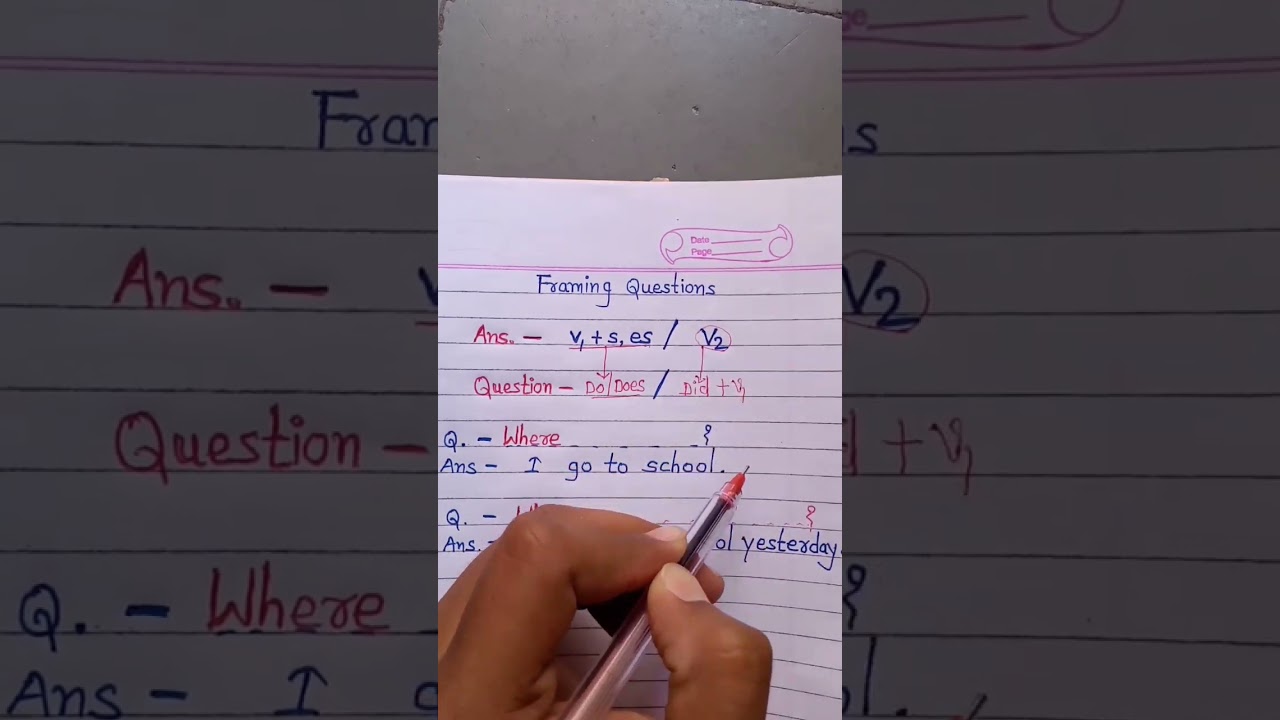 Date
Page
Framing Questions
Ans. - V1 + s, es / V2
Question - Do/Does / Did + V1
Q. - Where _ _ _ _ _ _ ?
Ans - I go to school.
Q. - _ _ _ _ ?
Ans. - yesterday.